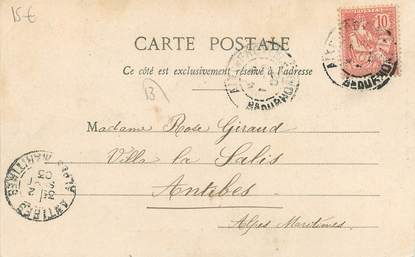 15€
10
CARTE POSTALE
Ce côté est exclusivement réservé à l'adresse
13
Bes DU RHONE
Madame Rose Giraud
Villa la Salis
Antibes
Alpes Maritimes
ANTIBES
ALPES MARITIMES